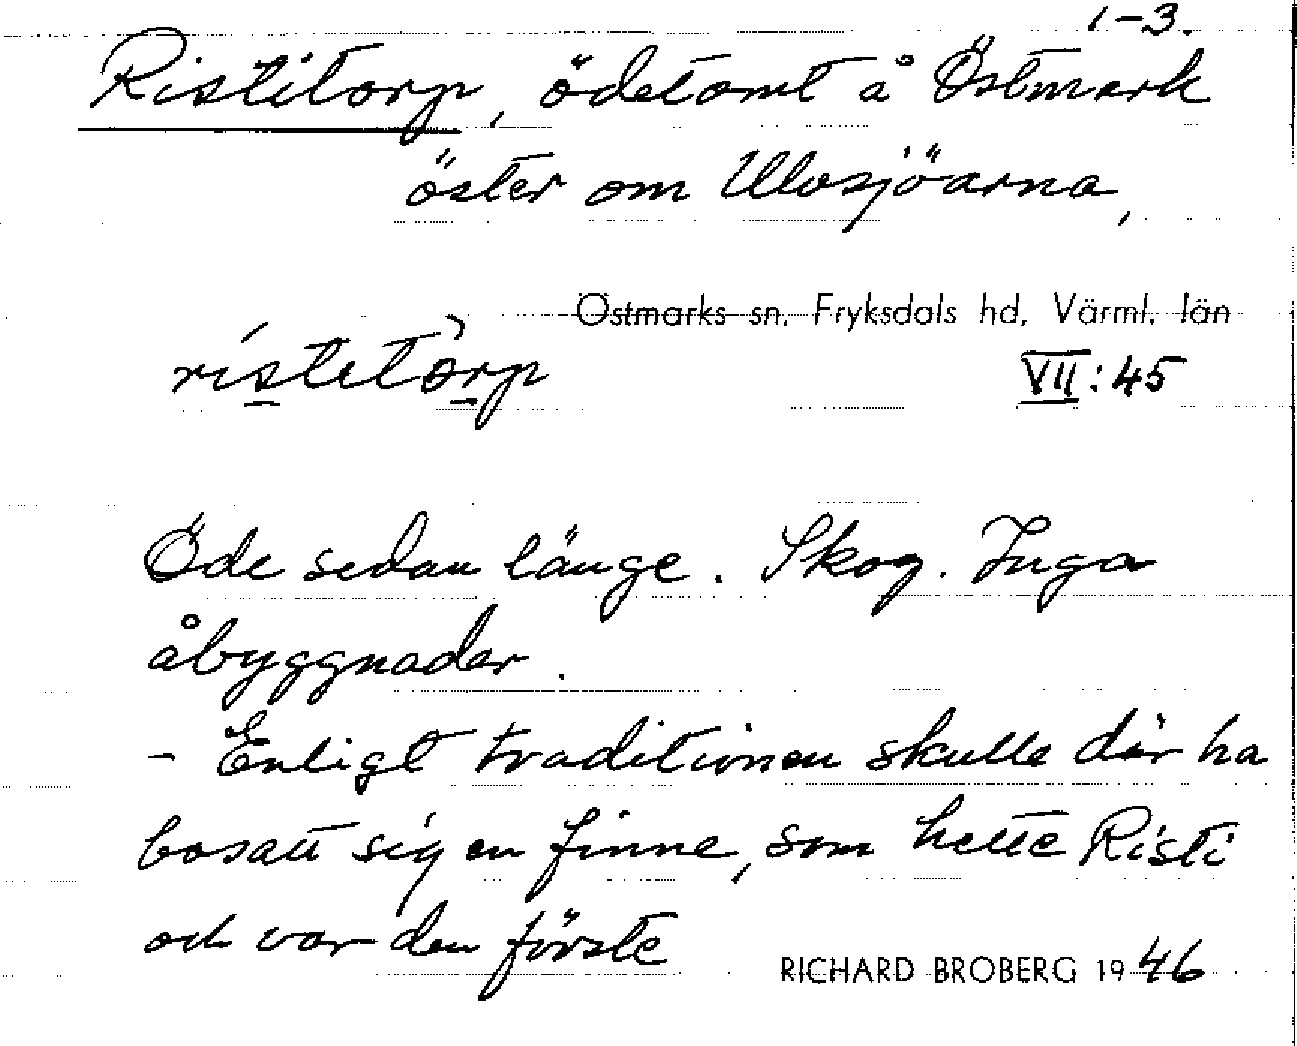 1-3.
Ristitorp, ödetomt å Östmark
öster om Ulvsjöarna,
Östmarks sn, Fryksdals hd, Värml. län
ristetòrp
VII:45
Öde sedan länge. Skog. Inga
åbyggnader.
- Enligt traditionen skulle där ha
bosatt sig en finne, som hette Risti
och var den förste
RICHARD BROBERG 1946